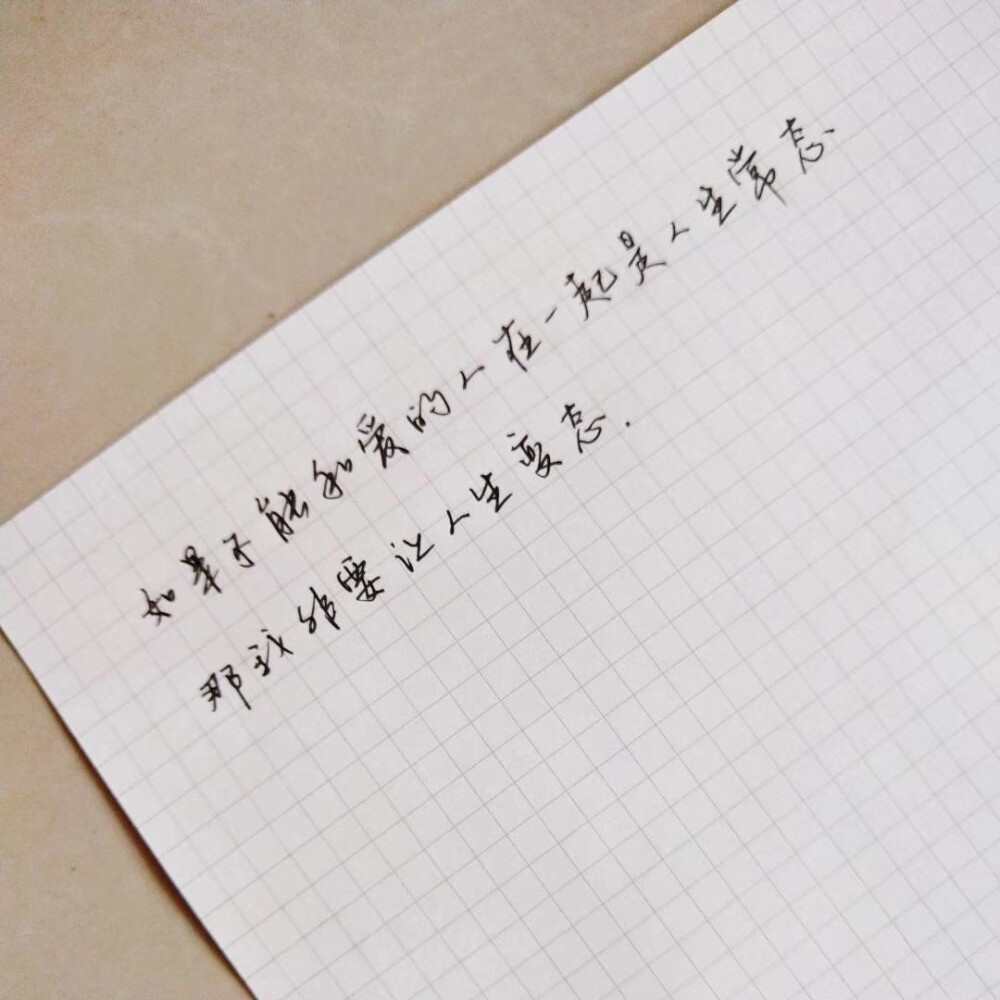 如果不能和爱的人在一起是人生常态
那我偏要让人生变态.